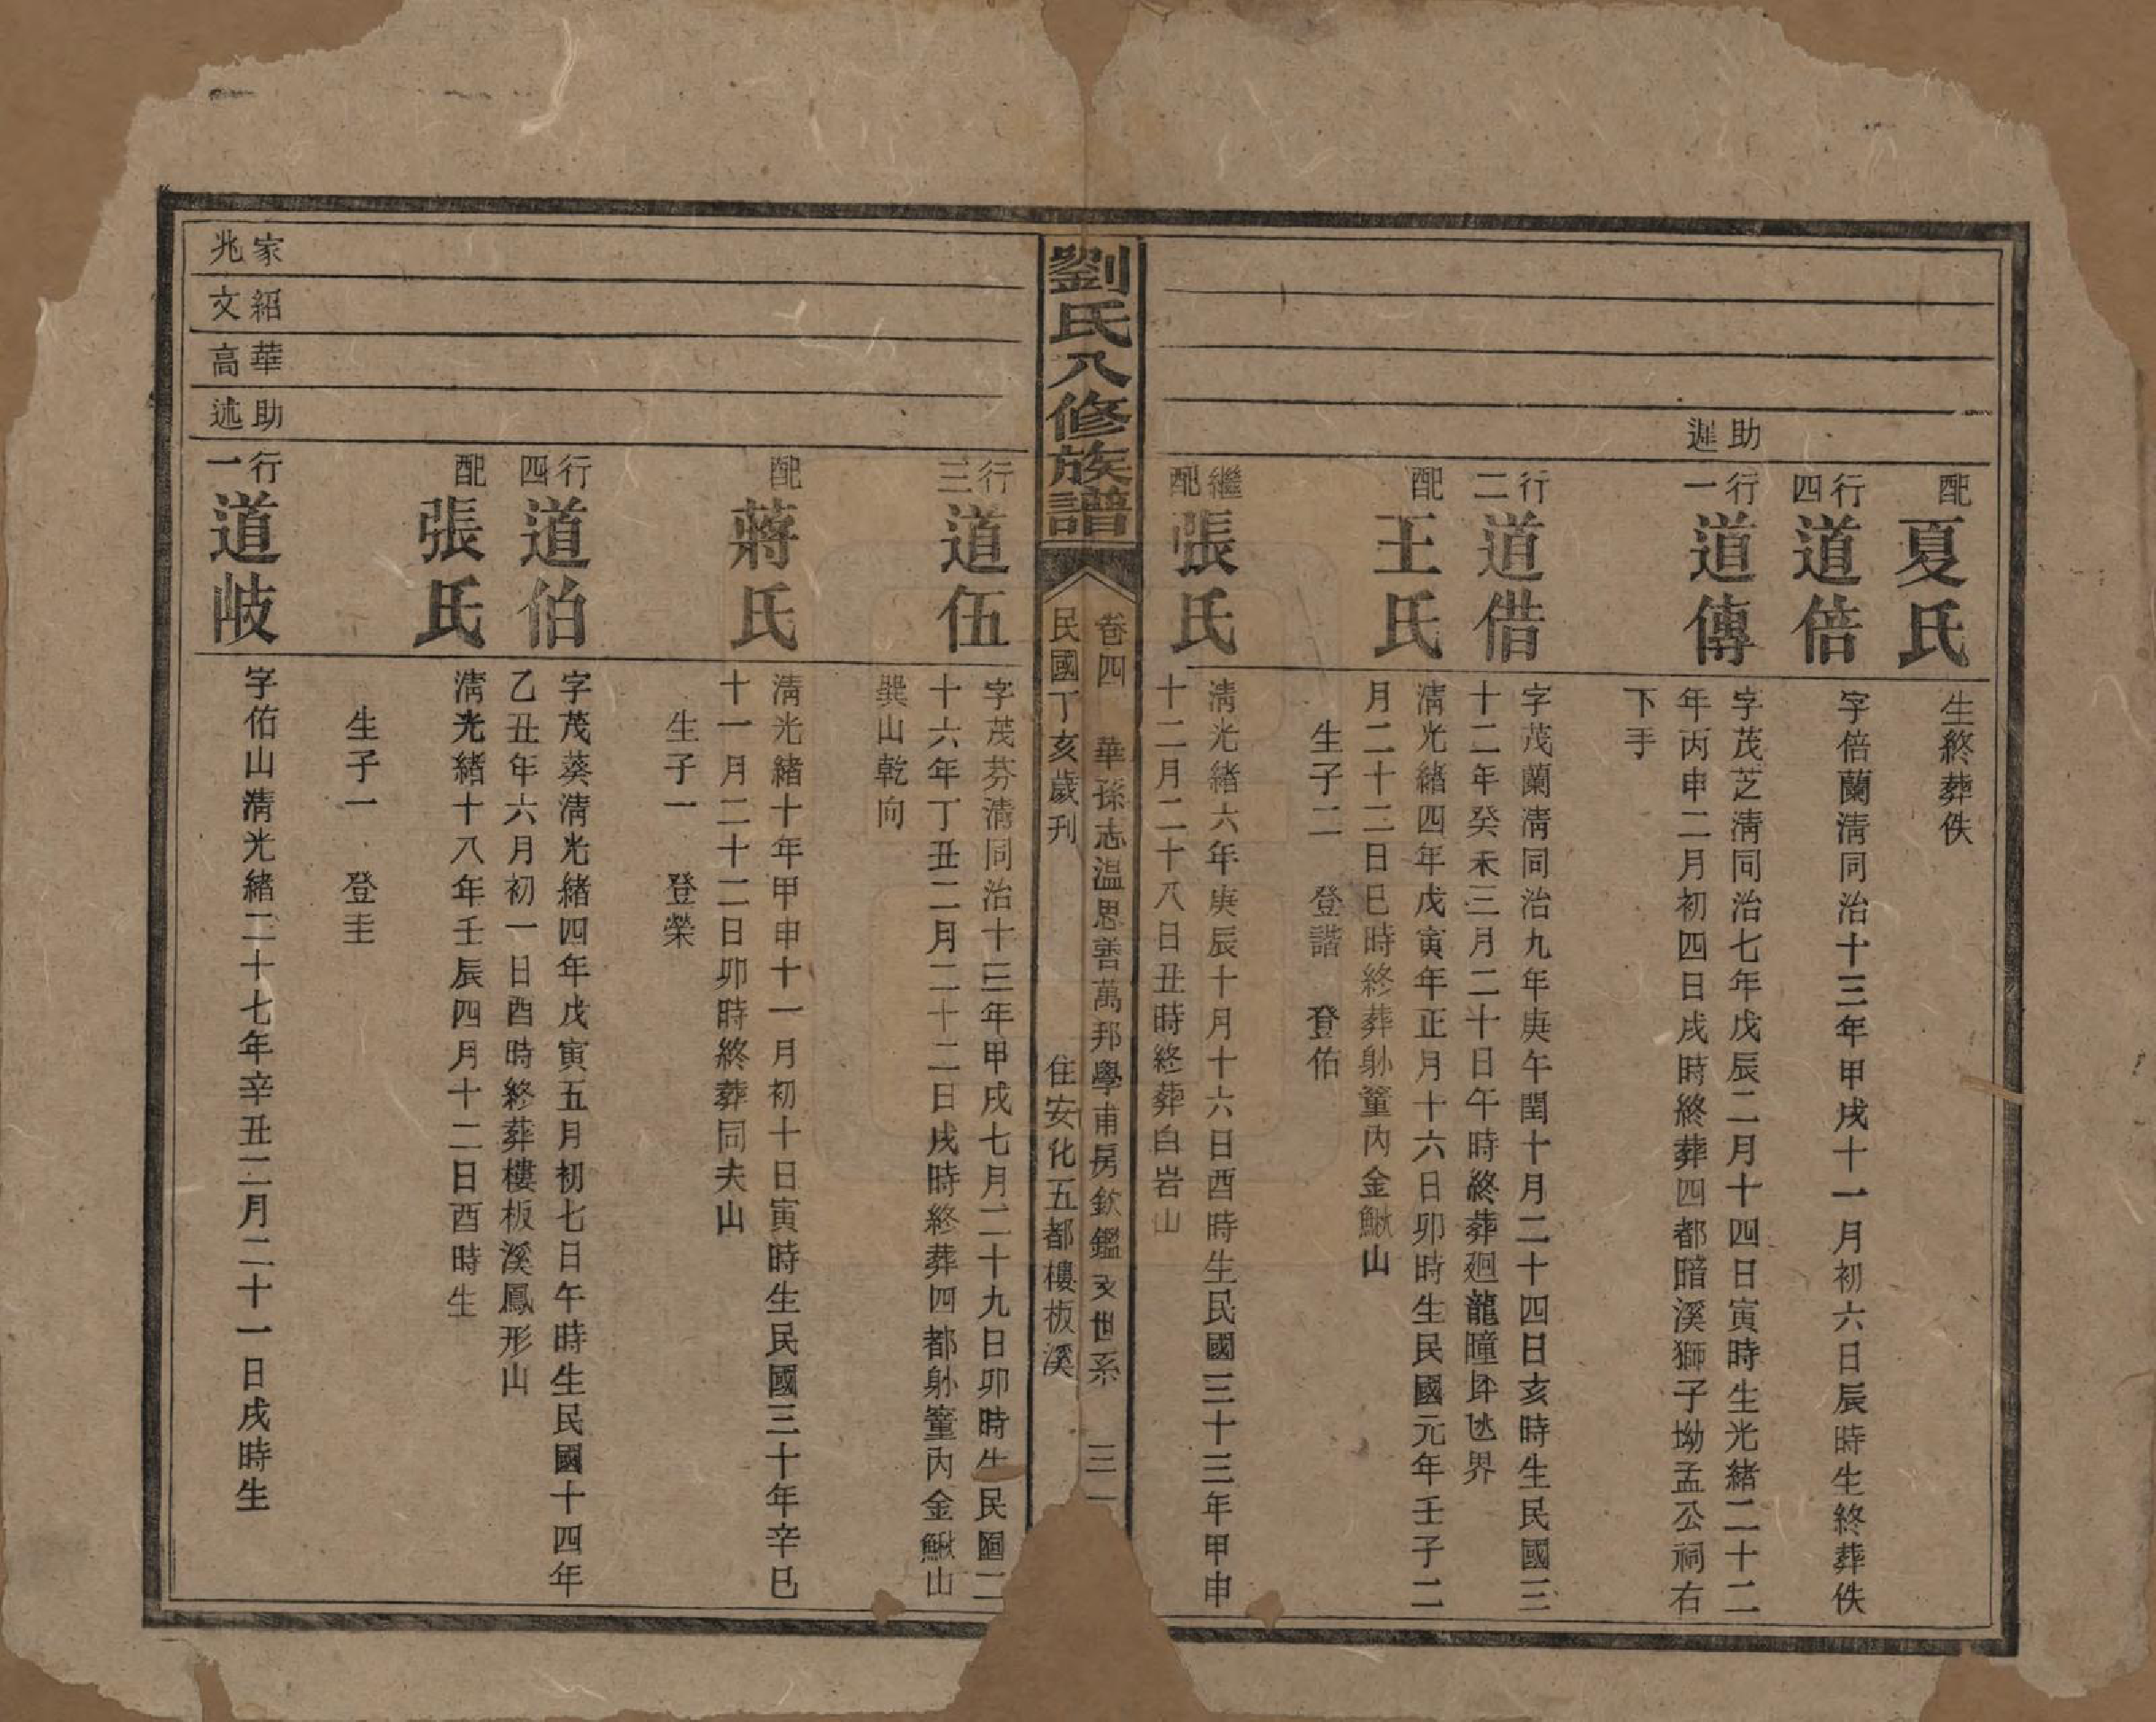 配夏氏
生終葬佚
行四道倍
字倍蘭清同治十三年甲戌十一月初六日辰時生終葬佚
助遲
行一道傳
字茂芝清同治七年戊辰二月十四日寅時生光緒二十二
年丙申二月初四日戌時終葬四都暗溪獅子坳孟公祠右
下手
行二道借
字茂蘭清同治九年庚午閏十月二十四日亥時生民國三
十二年癸未三月二十日午時終葬廻龍疃界
配王氏
清光緒四年戊寅年正月十六日卯時生民國元年壬子二
月二十二日巳時終葬躰篁內金鰍山
生子二 登諧 登佑
繼配張氏
清光緒六年庚辰十月十六日酉時生民國三十三年甲申
十二月二十八日丑時終葬白岩山
劉氏八修族譜
卷四 華孫志溫思善萬邦學甫房欽鑑文世系 三一
民國丁亥歲刊 住安化五都樓板溪
行三道伍
字茂芬清同治十三年甲戌七月二十九日卯時生民國二
十六年丁丑二月二十二日戌時終葬四都躰篁內金鰍山
巽山乾向
配蔣氏
清光緒十年甲申十一月初十日寅時生民國三十年辛巳
十一月二十二日卯時終葬同夫山
生子一 登榮
行四道伯
字茂葵清光緒四年戊寅五月初七日午時生民國十四年
乙丑年六月初一日酉時終葬樓板溪鳳形山
配張氏
清光緒十八年壬辰四月十二日酉時生
生子一 登圭
家兆
紹文
華高
助述
行一道岐
字佑山清光緒二十七年辛丑二月二十一日戌時生